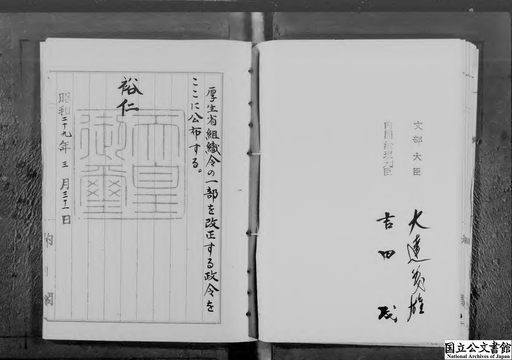 厚生省組織令の一部を改正する政令を
ここに公布する。
裕仁
天皇
御璽
昭和二十九年三月三十一日
内閣
文部大臣
大達茂雄
内閣総理大臣
吉田茂
国立公文書館
National Archives of Japan